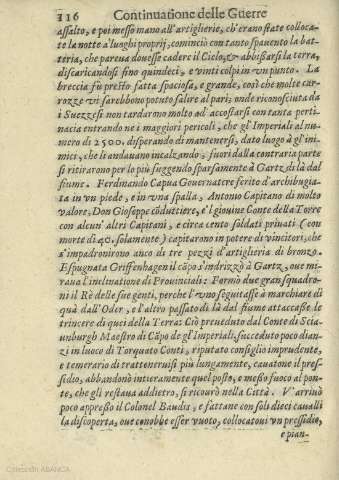 116 Continuatione delle Guerre
assalto, e poi messo mano all'artiglierie, ch'erano state colloca-
te la notte a'luoghi proprij, cominciò con tanto spauento la bat-
teria, che pareua douesse cadere il Cielo, & abbissarsi la terra,
discaricandosi fino quindeci, e vinti colpi in vn punto. La
breccia fù presto fatta spaciosa, e grande, così che molte car-
rozze vi sarebbono potuto salire al pari; onde riconosciuta da
i Suezzesi non tardarono molto ad accostarsi con tanta perti-
nacia entrando ne i maggiori pericoli, che gl'Imperiali al nu-
mero di 2500. disperando di mantenersi, dato luogo à gl'ini-
mici, che li andauano incalzando, fuori dalla contraria parte
si ritirarono per lo più fuggendo sparsamente à Gartz di là dal
fiume. Ferdinando Capua Gouernatore ferito d'archibugia-
ta in vn piede, e in vna spalla, Antonio Capitano di molto
valore, Don Gioseppe cõdutiere, e'l giouine Conte della Torre
con alcun'altri Capitani, e circa cento soldati priuati (con
morte di 40. solamente) capitarono in potere di vincitori, che
s'impadronirono anco di tre pezzi d'artiglieria di bronzo.
Espugnata Griffenhagen il cãpo s'indrizzò à Gartz, oue mi-
raua l'inclinatione di Prouinciali: Formò due gran squadro-
ni il Rè delle sue genti, perche l'vno seguitasse à marchiare di
quà dall'Oder, e l'altro passato di là dal fiume attaccasse le
trincere di quei della Terra: Ciò preueduto dal Conte di Scia-
unburgh Maestro di Cãpo de gl'Imperiali, succeduto poco dian-
zi in luoco di Torquato Conti, riputato consiglio imprudente,
e temerario di trattenerui si più lungamente, cauatone il pre-
sidio, abbandonò intieramente quel posto, e messo fuoco al pon-
te, che gli restaua addietro, si ricourò nella Città. V'arriuò
poco appresso il Colonel Baudis, e fattane con soli dieci caualli
la discoperta, oue conobbe esser vuoto, collocatoui vn pressidio,
e pian-
Colección ABANCA